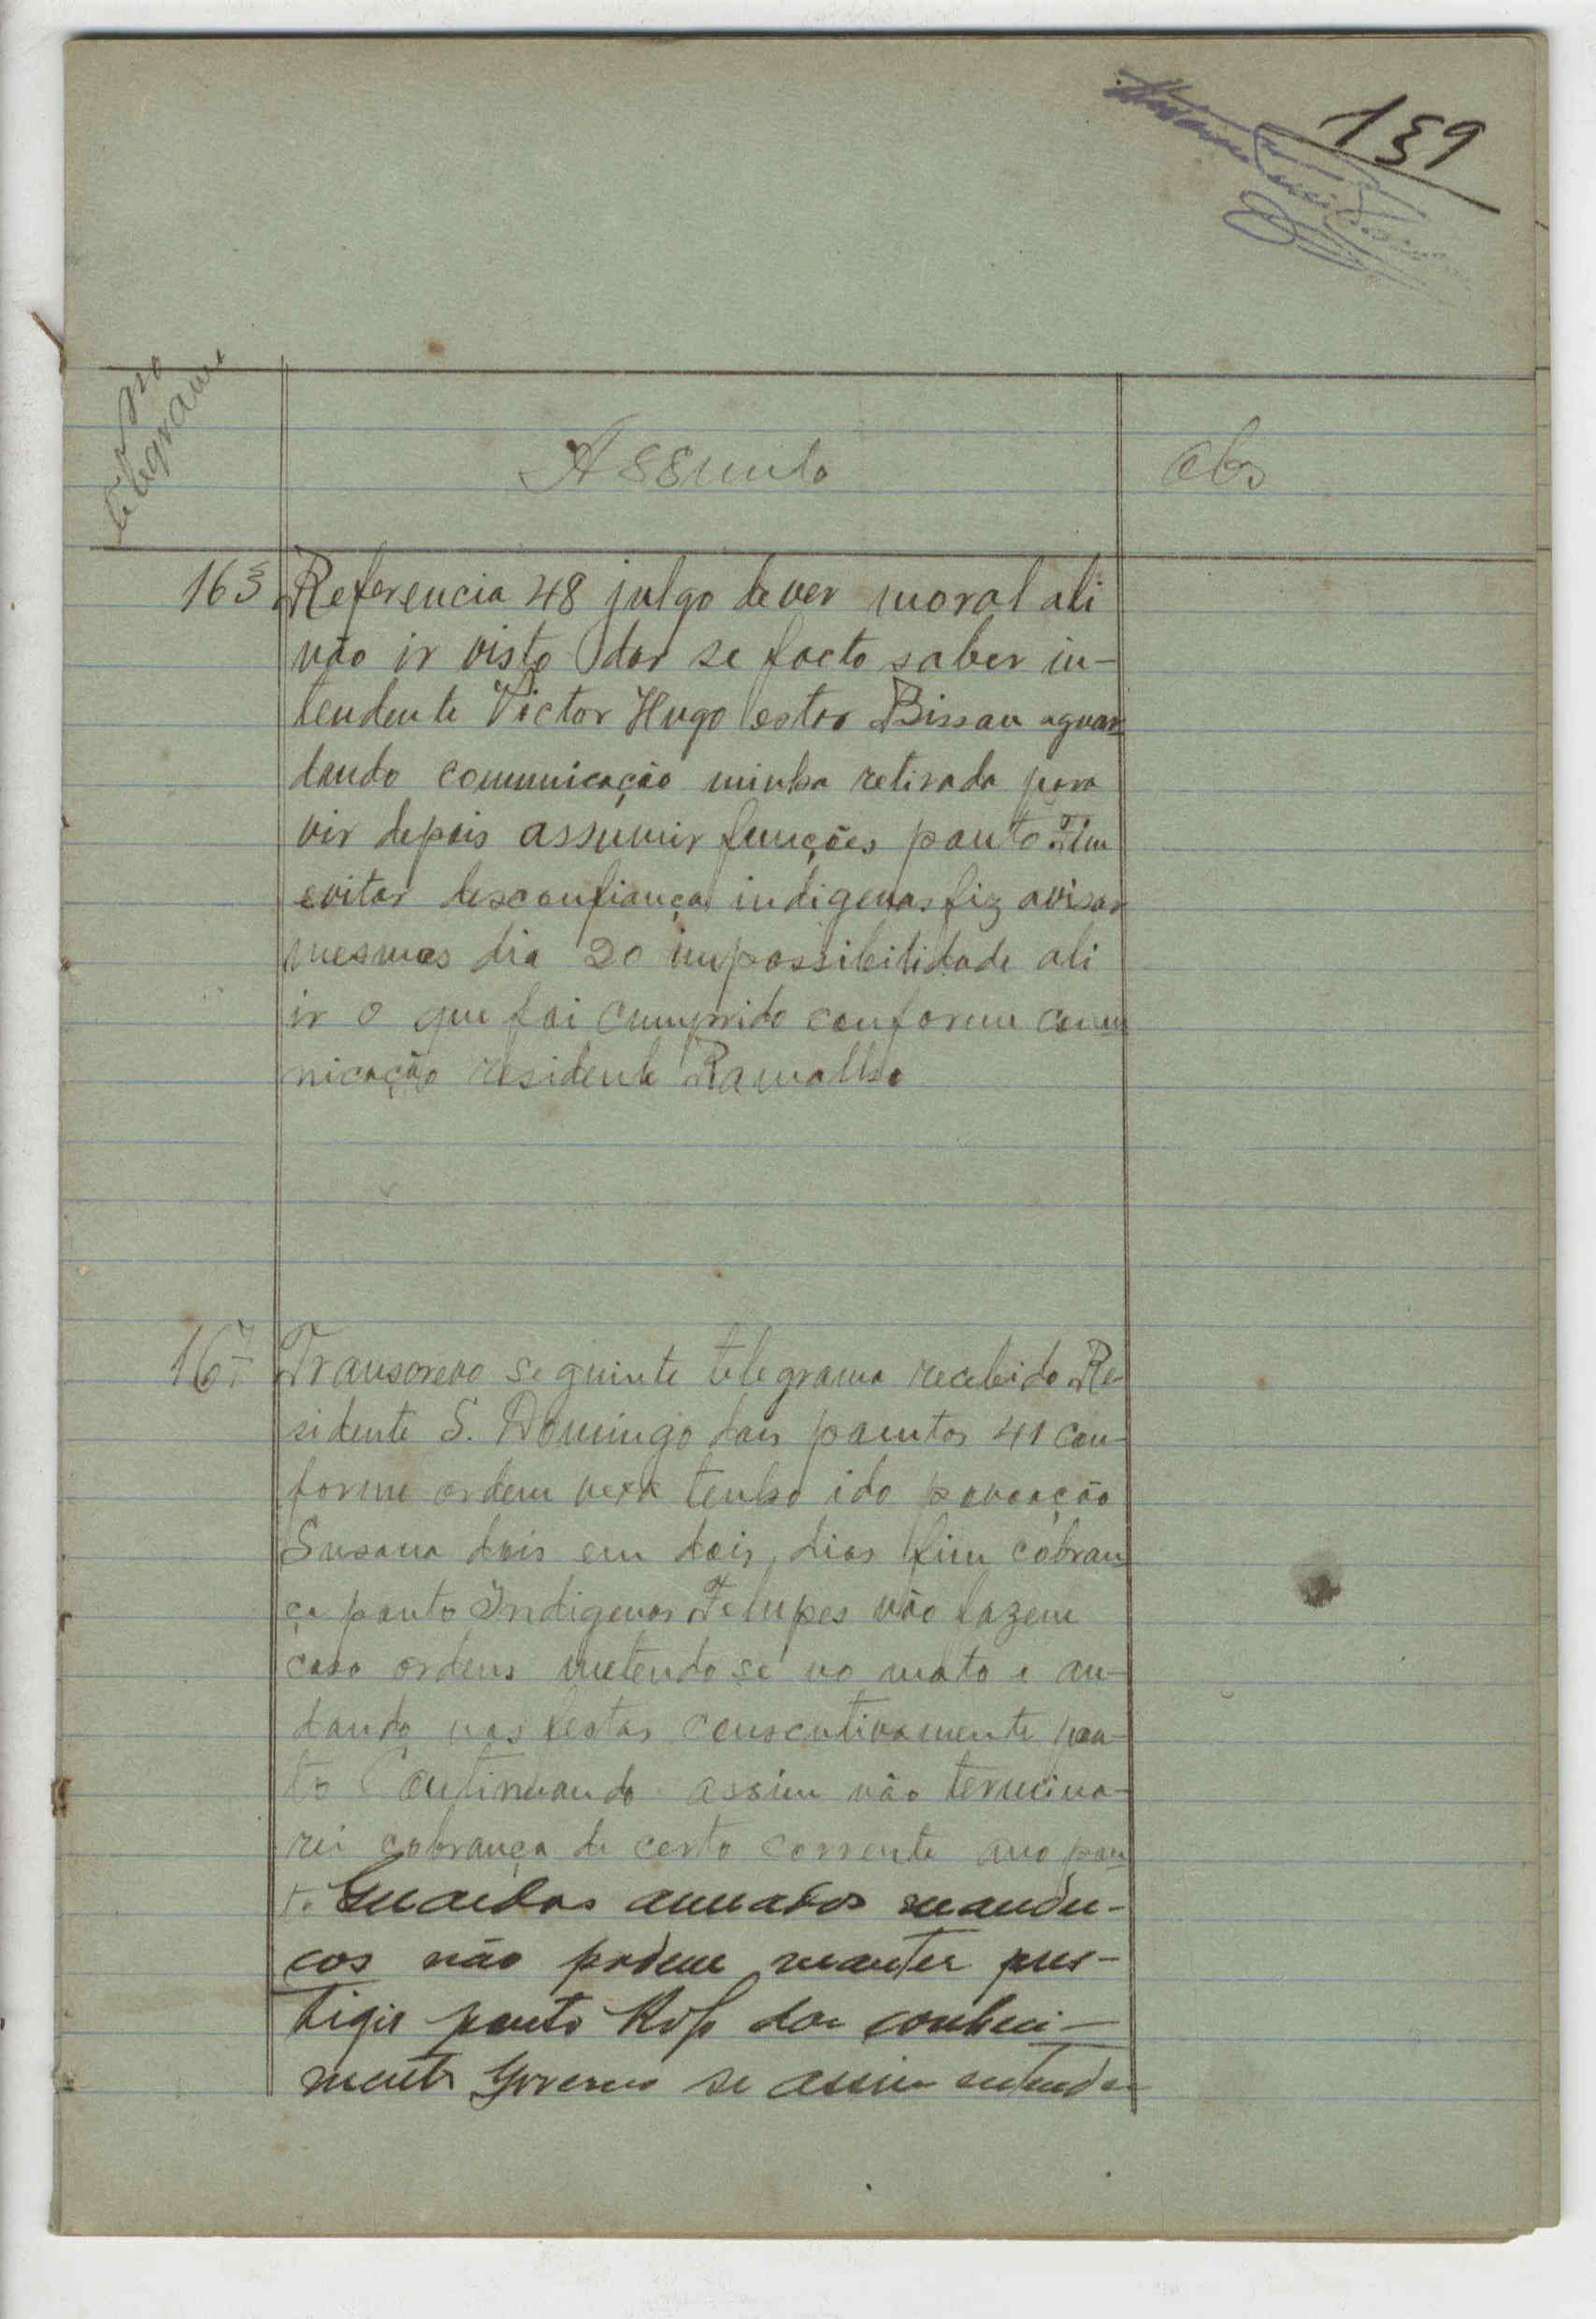 159
Nº
telegrama
Assunto
Obs
165 Referencia 48 julgo dever moral ali
não ir visto dar se facto saber in-
tendente Victor Hugo estar Bissau aguar
dando comunicação minha retirada para
vir depois assumir funções ponto Fim
evitar desconfiança indigenas fiz avisar
mesmos dia 20 impossibilidade ali
ir o que foi cumprido conforme comu
nicação residente Ramalho
167 Transcrevo seguinte telegrama recebido Re-
sidente S. Domingo dois pontos 41 con-
forme ordem vexa tenho ido povoação
Susana dois em dois dias fim cobran
ça ponto Indigenas Felupes não fazem
caso ordens metendo se no mato e an-
dando nas festas consecutivamente pon-
to Continuando assim não termina-
rei cobrança de certo corrente ano pon
to Guardas armados mandu-
cos não podem manter pres-
tigio ponto Rogo dar conheci-
mento Governo se assim entender